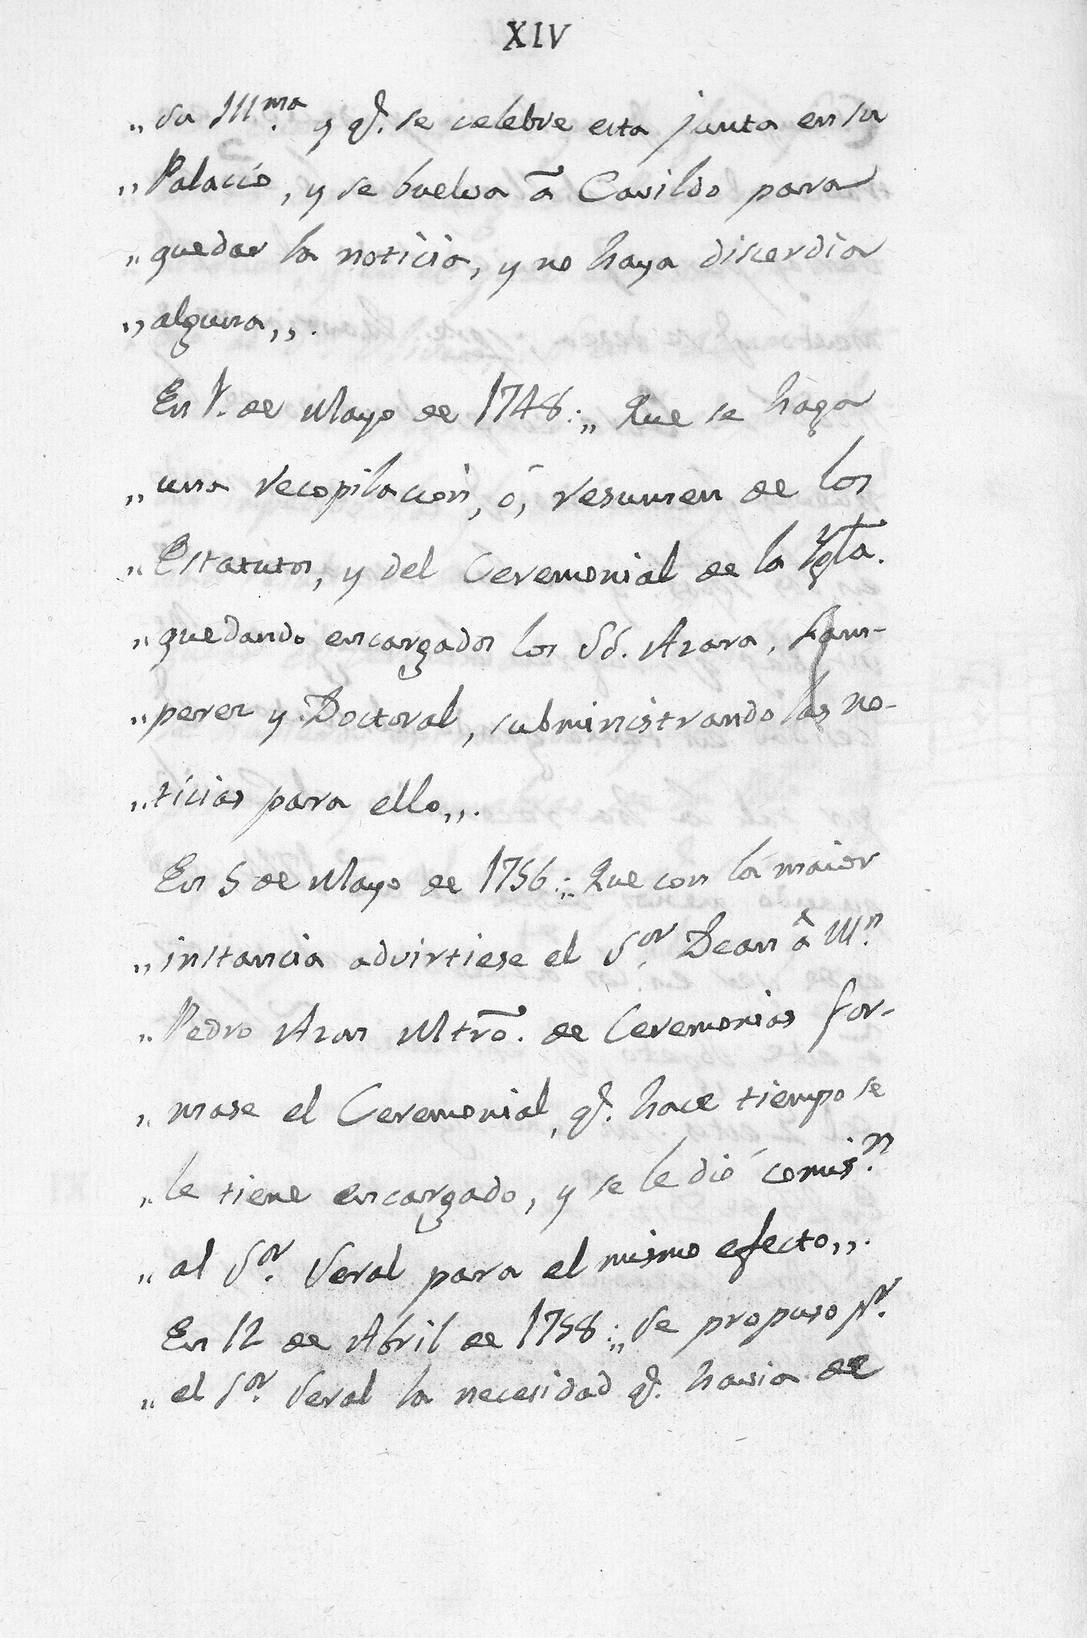 XIV
„ su Ill.ᵐᵃ y q.ᵉ se celebre esta junta en su
„ Palacio, y se buelva ã Cavildo para
„ quedar la noticia, y no haya discordia
„ alguna„.
En 1. de Mayo de 1748:„ Que se haga
„ una recopilacion, ó, resumen de los
„ Estatutos, y del Ceremonial de la Ygl̃a.
„ quedando encargados los SS. Azara, Sam-
„ perez y Doctoral, subministrando las no-
„ ticias para ello„.
En 5 de Mayo de 1756:„ Que con la maior
„ instancia advirtiese el S.ᵒʳ Dean â M.ⁿ
„ Pedro Azon Mtrõ. de Ceremonias for-
„ mase el Ceremonial, q.ᵉ hace tiempo se
„ le tiene encargado, y se le dió comis.ⁿ
„ al S.ᵒʳ Veral para el mismo efecto„.
En 12 de Abril de 1758:„ Se propuso p.ʳ
„ el S.ᵒʳ Veral la necesidad q.ᵉ havia de